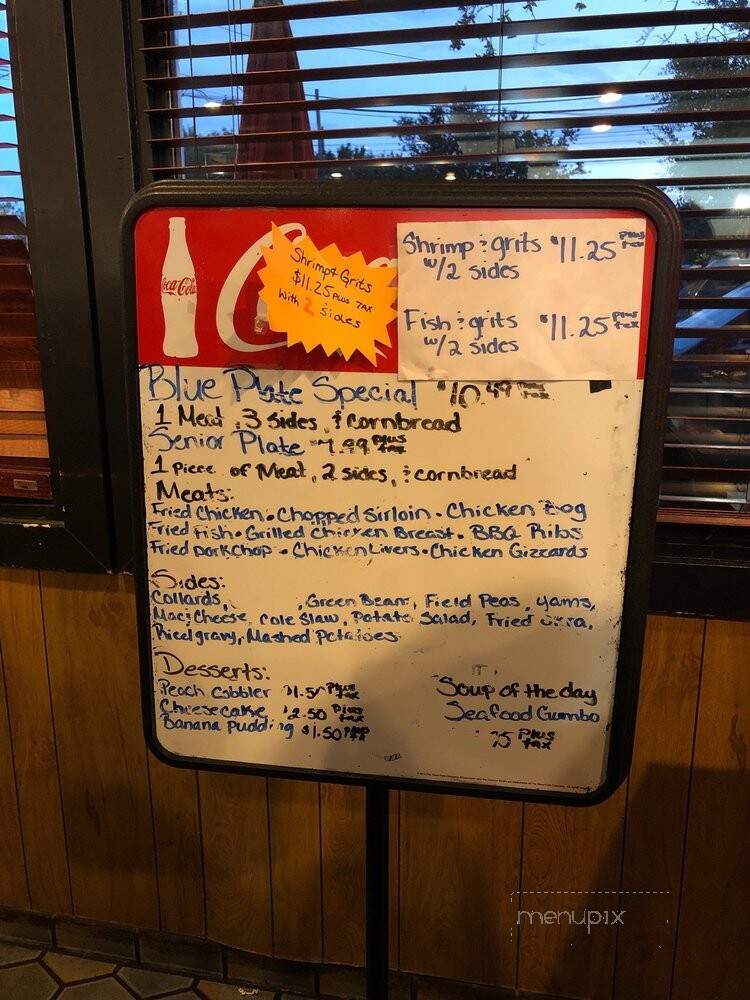 Coca-Cola
Shrimp & Grits
$11.25 plus TAX
with 2 sides
Shrimp & grits $11.25 plus tax
w/2 sides
Fish & grits $11.25 plus tax
w/2 sides
Blue Plate Special $10.49 plus tax
1 Meat, 3 sides, & cornbread
Senior Plate $7.99 plus tax
1 Piece of Meat, 2 sides, & cornbread
Meats:
Fried Chicken • Chopped Sirloin • Chicken Bog
Fried Fish • Grilled Chicken Breast • BBQ Ribs
Fried porkchop • Chicken Livers • Chicken Gizzards
Sides:
Collards, , Green Beans, Field Peas, Yams,
Mac & Cheese, Cole Slaw, Potato Salad, Fried Okra,
Rice/gravy, Mashed Potatoes
Desserts:
Peach Cobbler $1.50 Plus tax
Cheesecake $2.50 Plus tax
Banana Pudding $1.50
Soup of the day
Seafood Gumbo
75 Plus tax
menupix